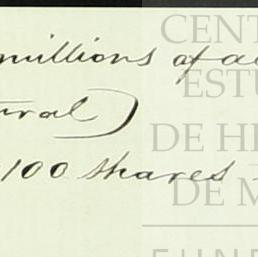 millions of
ural)
100 shares
CENT
ESTU
DE HI
DE M
FUND